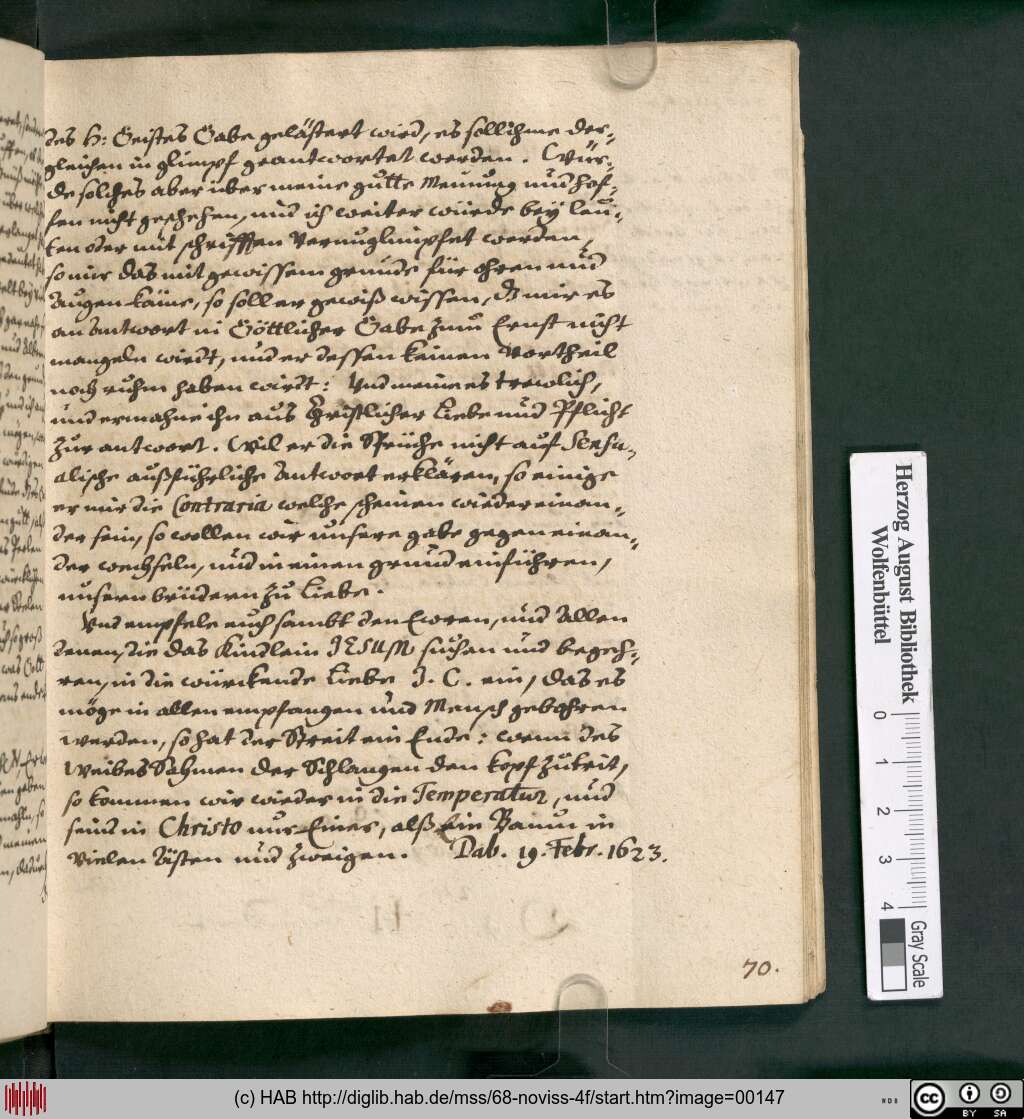 des H: Geistes Gabe gelästert wird, es soll ihme der-
gleichen in glimpf geantwortet werden. Wür-
de solches aber über meine gutte Meinung und hof-
fen nicht geschehen, und ich weiter würde bey leu-
ten oder mit schrifften verunglimpfet werden,
so mir das mit gewissem grunde für ohren und
Augen käme, so soll er gewiß wissen, dz mir es
an Antwort in Göttlicher Gabe zum Ernst nicht
mangeln wirdt, und er dessen keinen Vortheil
noch ruhm haben wirdt: Und meine es trewlich,
und ermahne ihn aus Christlicher Liebe und Pflicht
zur antwort. Wil er die Sprüche nicht auf Sensu-
alische außführliche Antwort erklären, so einige
er mir die Contraria welche scheinen wieder einan-
der sein, so wollen wir unsere gabe gegen einan-
der wechseln, und in einen grund einführen,
unsern brüdern zu Liebe.
Und empfele euch sambt den Ewren, und Allen
denen, die das Kindlein JESUM suchen und begeh-
ren, in die würckende Liebe J. C. ein, das es
möge in allen empfangen und Mensch gebohren
werden, so hat der Streit ein Ende: wenn des
Weibes Sahmen der Schlangen den kopf zutrit,
so kommen wir wieder in die Temperatur, und
seind in Christo nur Eines, alß Ein Baum in
Vielen Ästen und zweigen. Dab. 19. Febr. 1623.
70.
Herzog August Bibliothek
Wolfenbüttel
0 1 2 3 4
Gray Scale
(c) HAB http://diglib.hab.de/mss/68-noviss-4f/start.htm?image=00147
cc BY SA